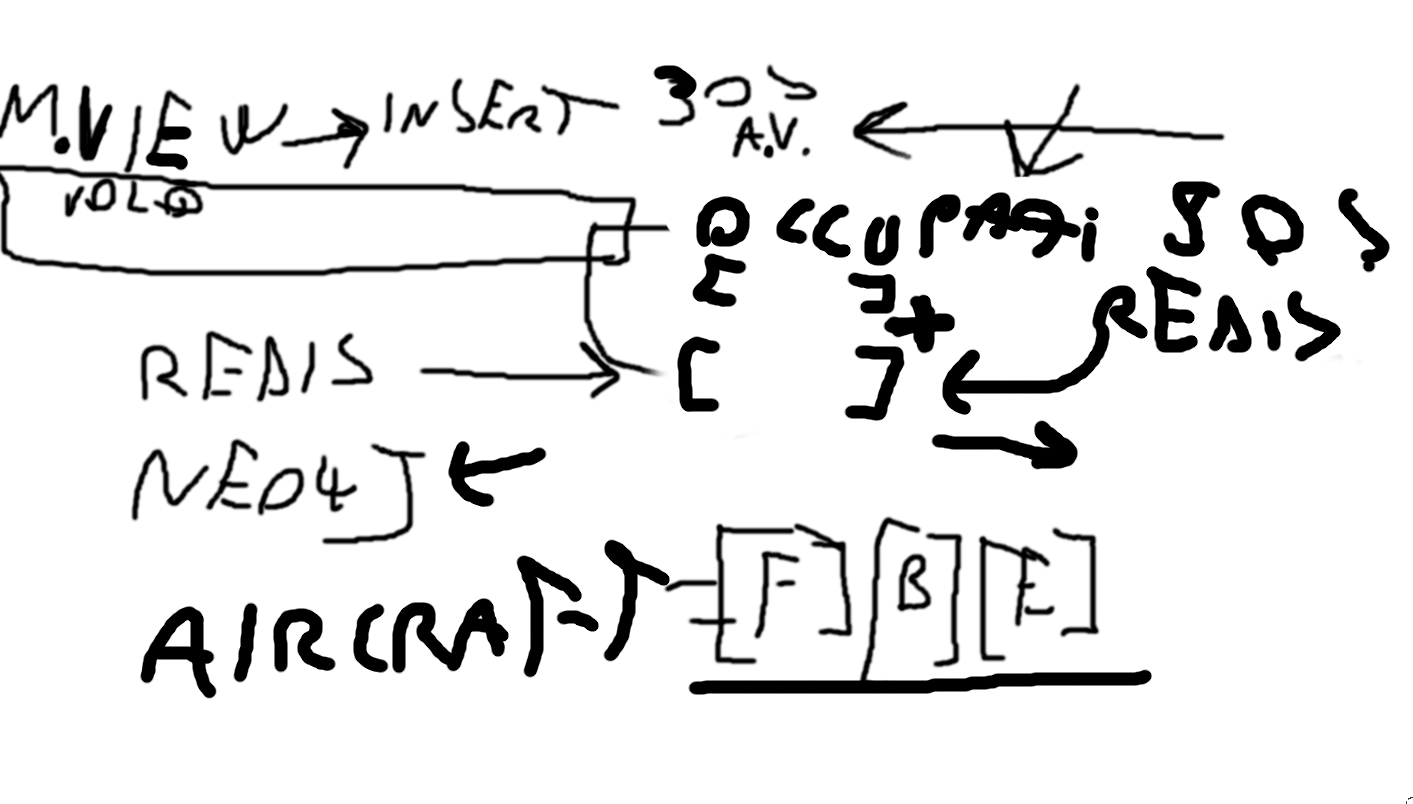 M.VIEW → INSERT 30S
A.V.
VOLO
OCCUPATI SOS
[ ] +
REDIS
REDIS → [ ] ←
NEO4J ←
AIRCRAFT - [F] [B] [E]